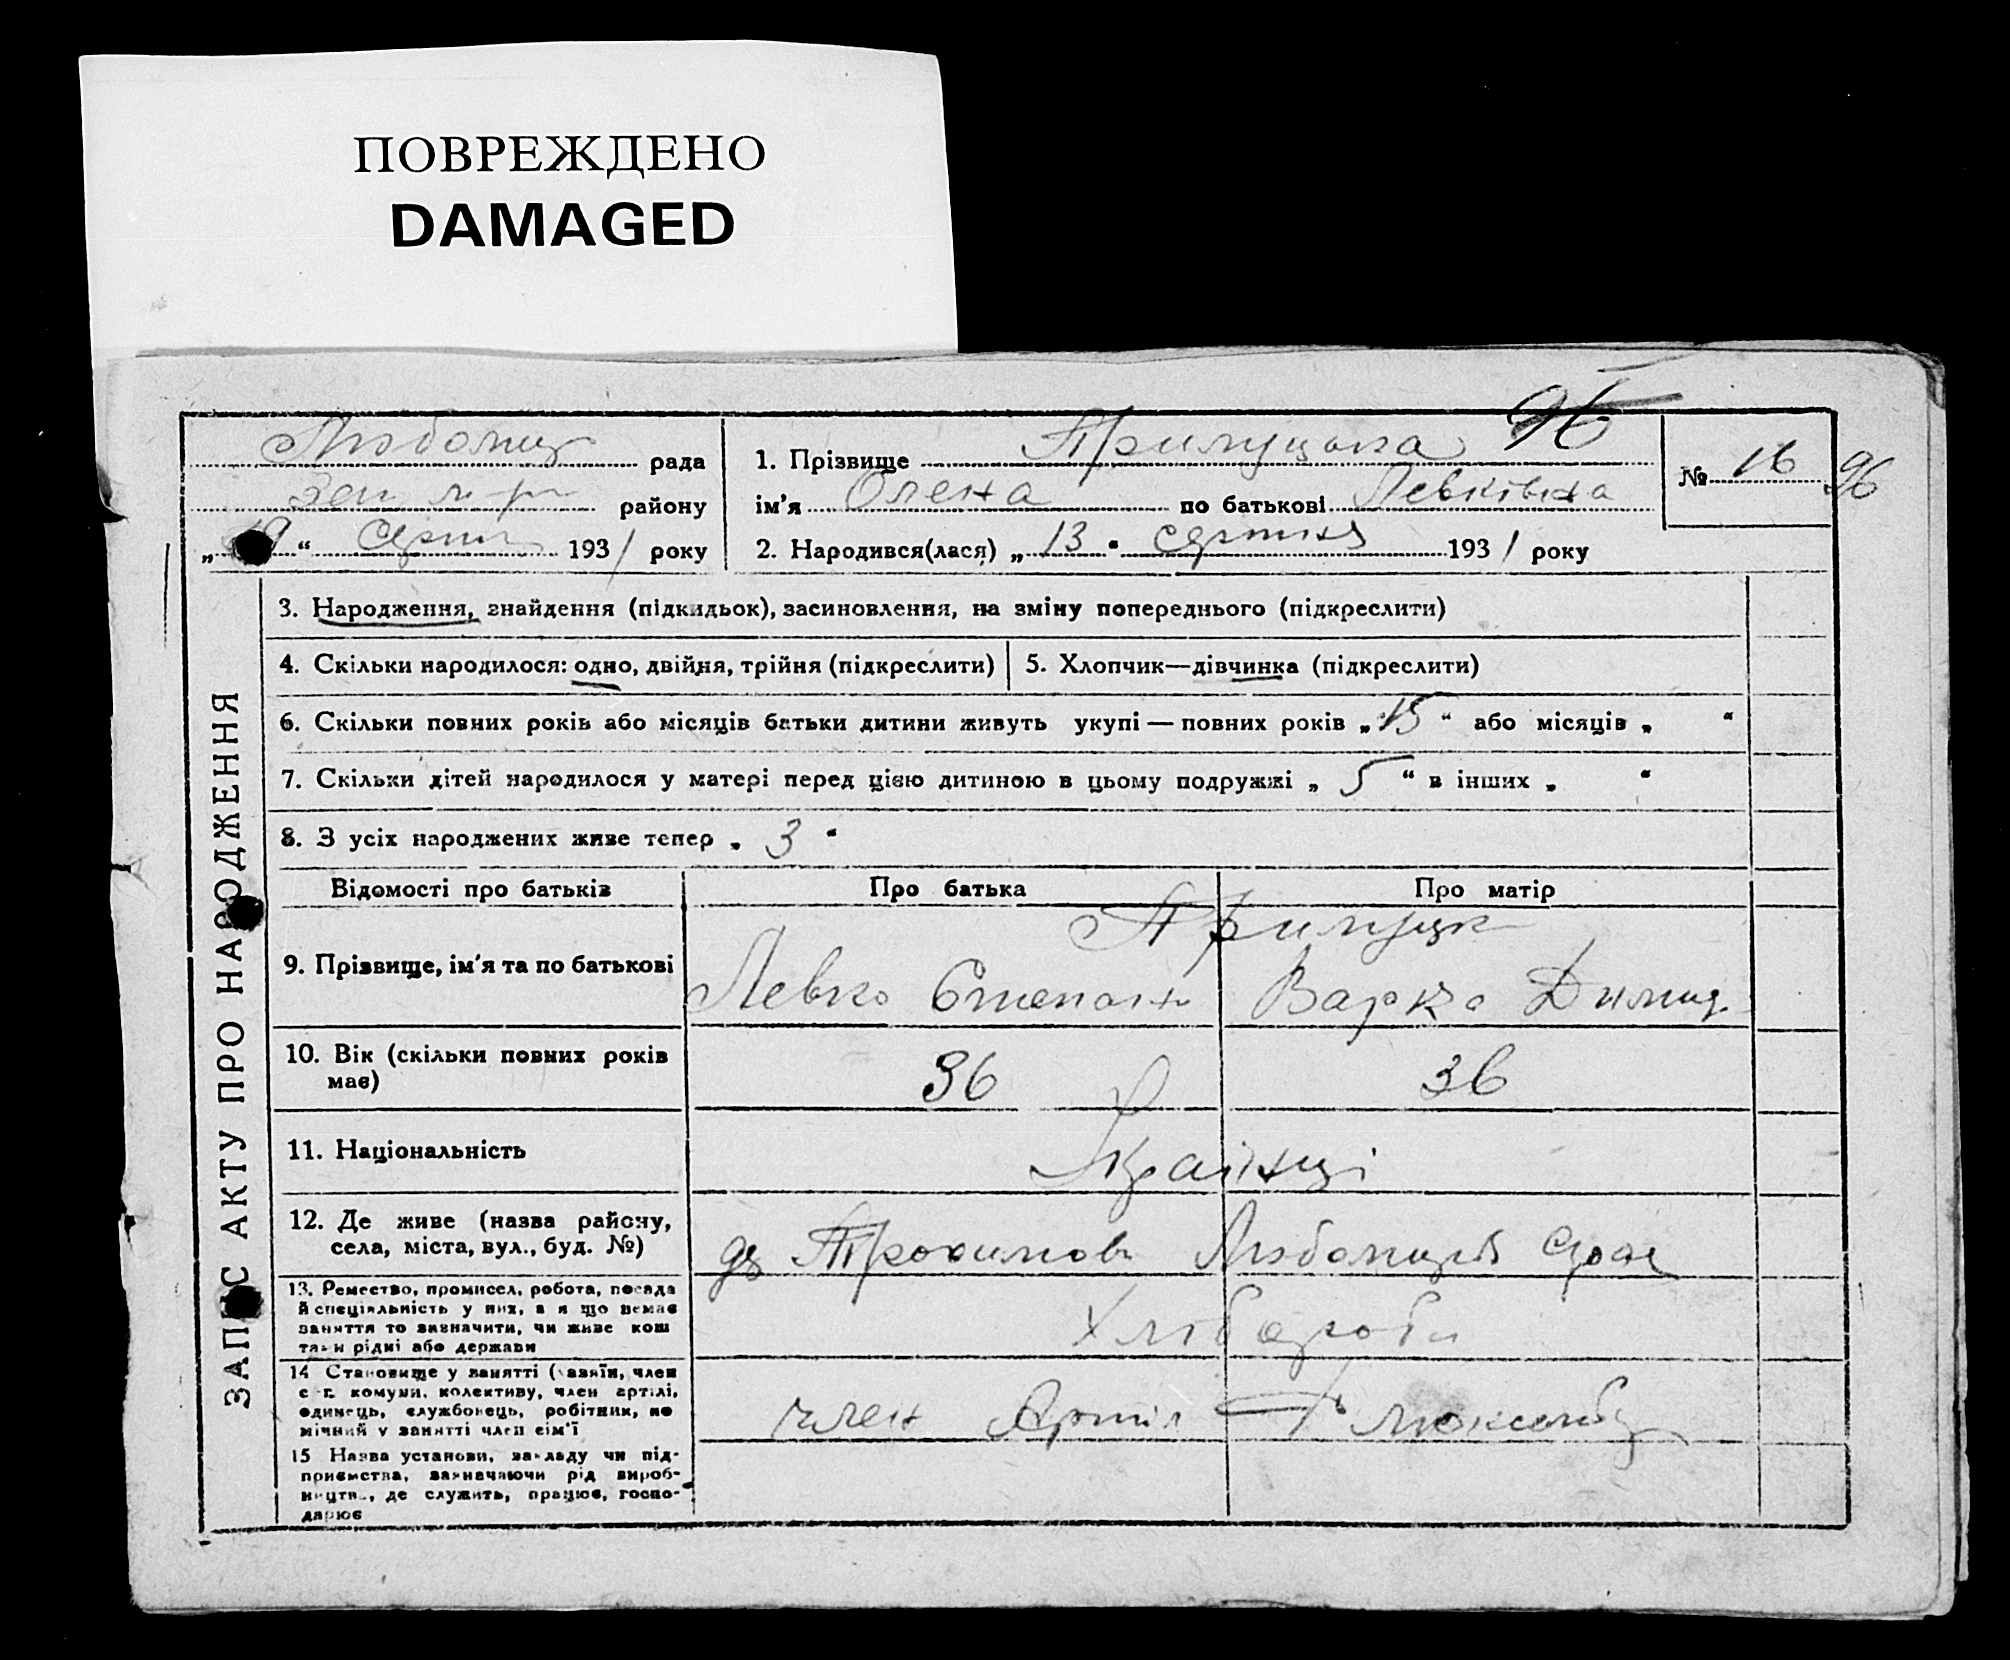 ПОВРЕЖДЕНО
DAMAGED
96
Любомир рада
Зен м р-н району
„19“ Серпн 1931 року
1. Прізвище Прилуцька
ім'я Олена по батькові Левківна
2. Народився(лася) „13“ серпня 1931 року
№ 16
96
ЗАПИС АКТУ ПРО НАРОДЖЕННЯ
3. Народження, знайдення (підкидьок), засиновлення, на зміну попереднього (підкреслити)
4. Скільки народилося: одно, двійня, трійня (підкреслити)
5. Хлопчик—дівчинка (підкреслити)
6. Скільки повних років або місяців батьки дитини живуть укупі — повних років „15“ або місяців „ “
7. Скільки дітей народилося у матері перед цією дитиною в цьому подружжі „ 5 “ в інших „ “
8. З усіх народжених живе тепер „ 3 “
Відомості про батьків
Про батька
Про матір
9. Прізвище, ім'я та по батькові
Прилуцьк
Левко Степан
Варка Димид
10. Вік (скільки повних років
має)
36
36
11. Національність
Українці
12. Де живе (назва району,
села, міста, вул., буд. №)
Трохимов Любомирів
13. Ремество, промисел, робота, посада
й спеціяльність у них, а я що немає
заняття то визначити, чи живе кош
тами рідні або держави
Хлібороби
14 Становище у занятті (хазяїн, член
с.-г. комуни, колективу, член артілі,
одинець, службовець, робітник, по
мічний у занятті член сім'ї
член Артіл Р Люксембу
15 Назва установи, закладу чи під-
приємства, зазначаючи рід вироб-
ництва, де служить, працює, госпо-
дарює